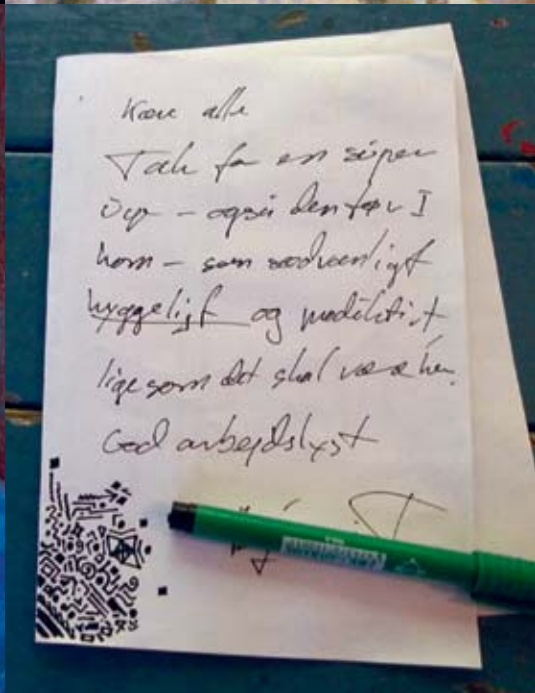 Kære alle
Tak for en super
uge - også den før I
kom - som sædvanligt
hyggeligt og
ligesom det skal være her.
God arbejdslyst